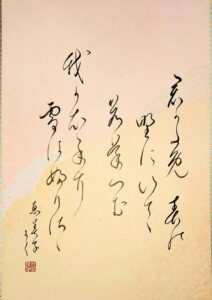 君かため 春の
野にいてゝ
若菜つむ
我か衣手に
雪はふりつゝ